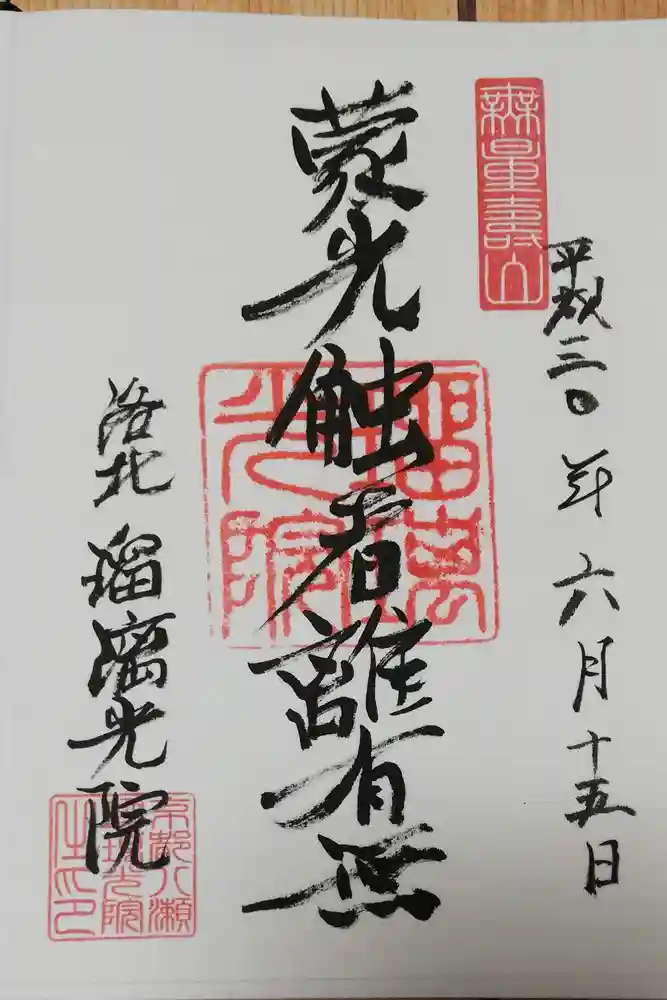 無量壽山
平成三〇年六月十五日
蒙光触者離有無
瑠璃
光院
洛北 瑠璃光院
京都八瀬
瑠璃光院